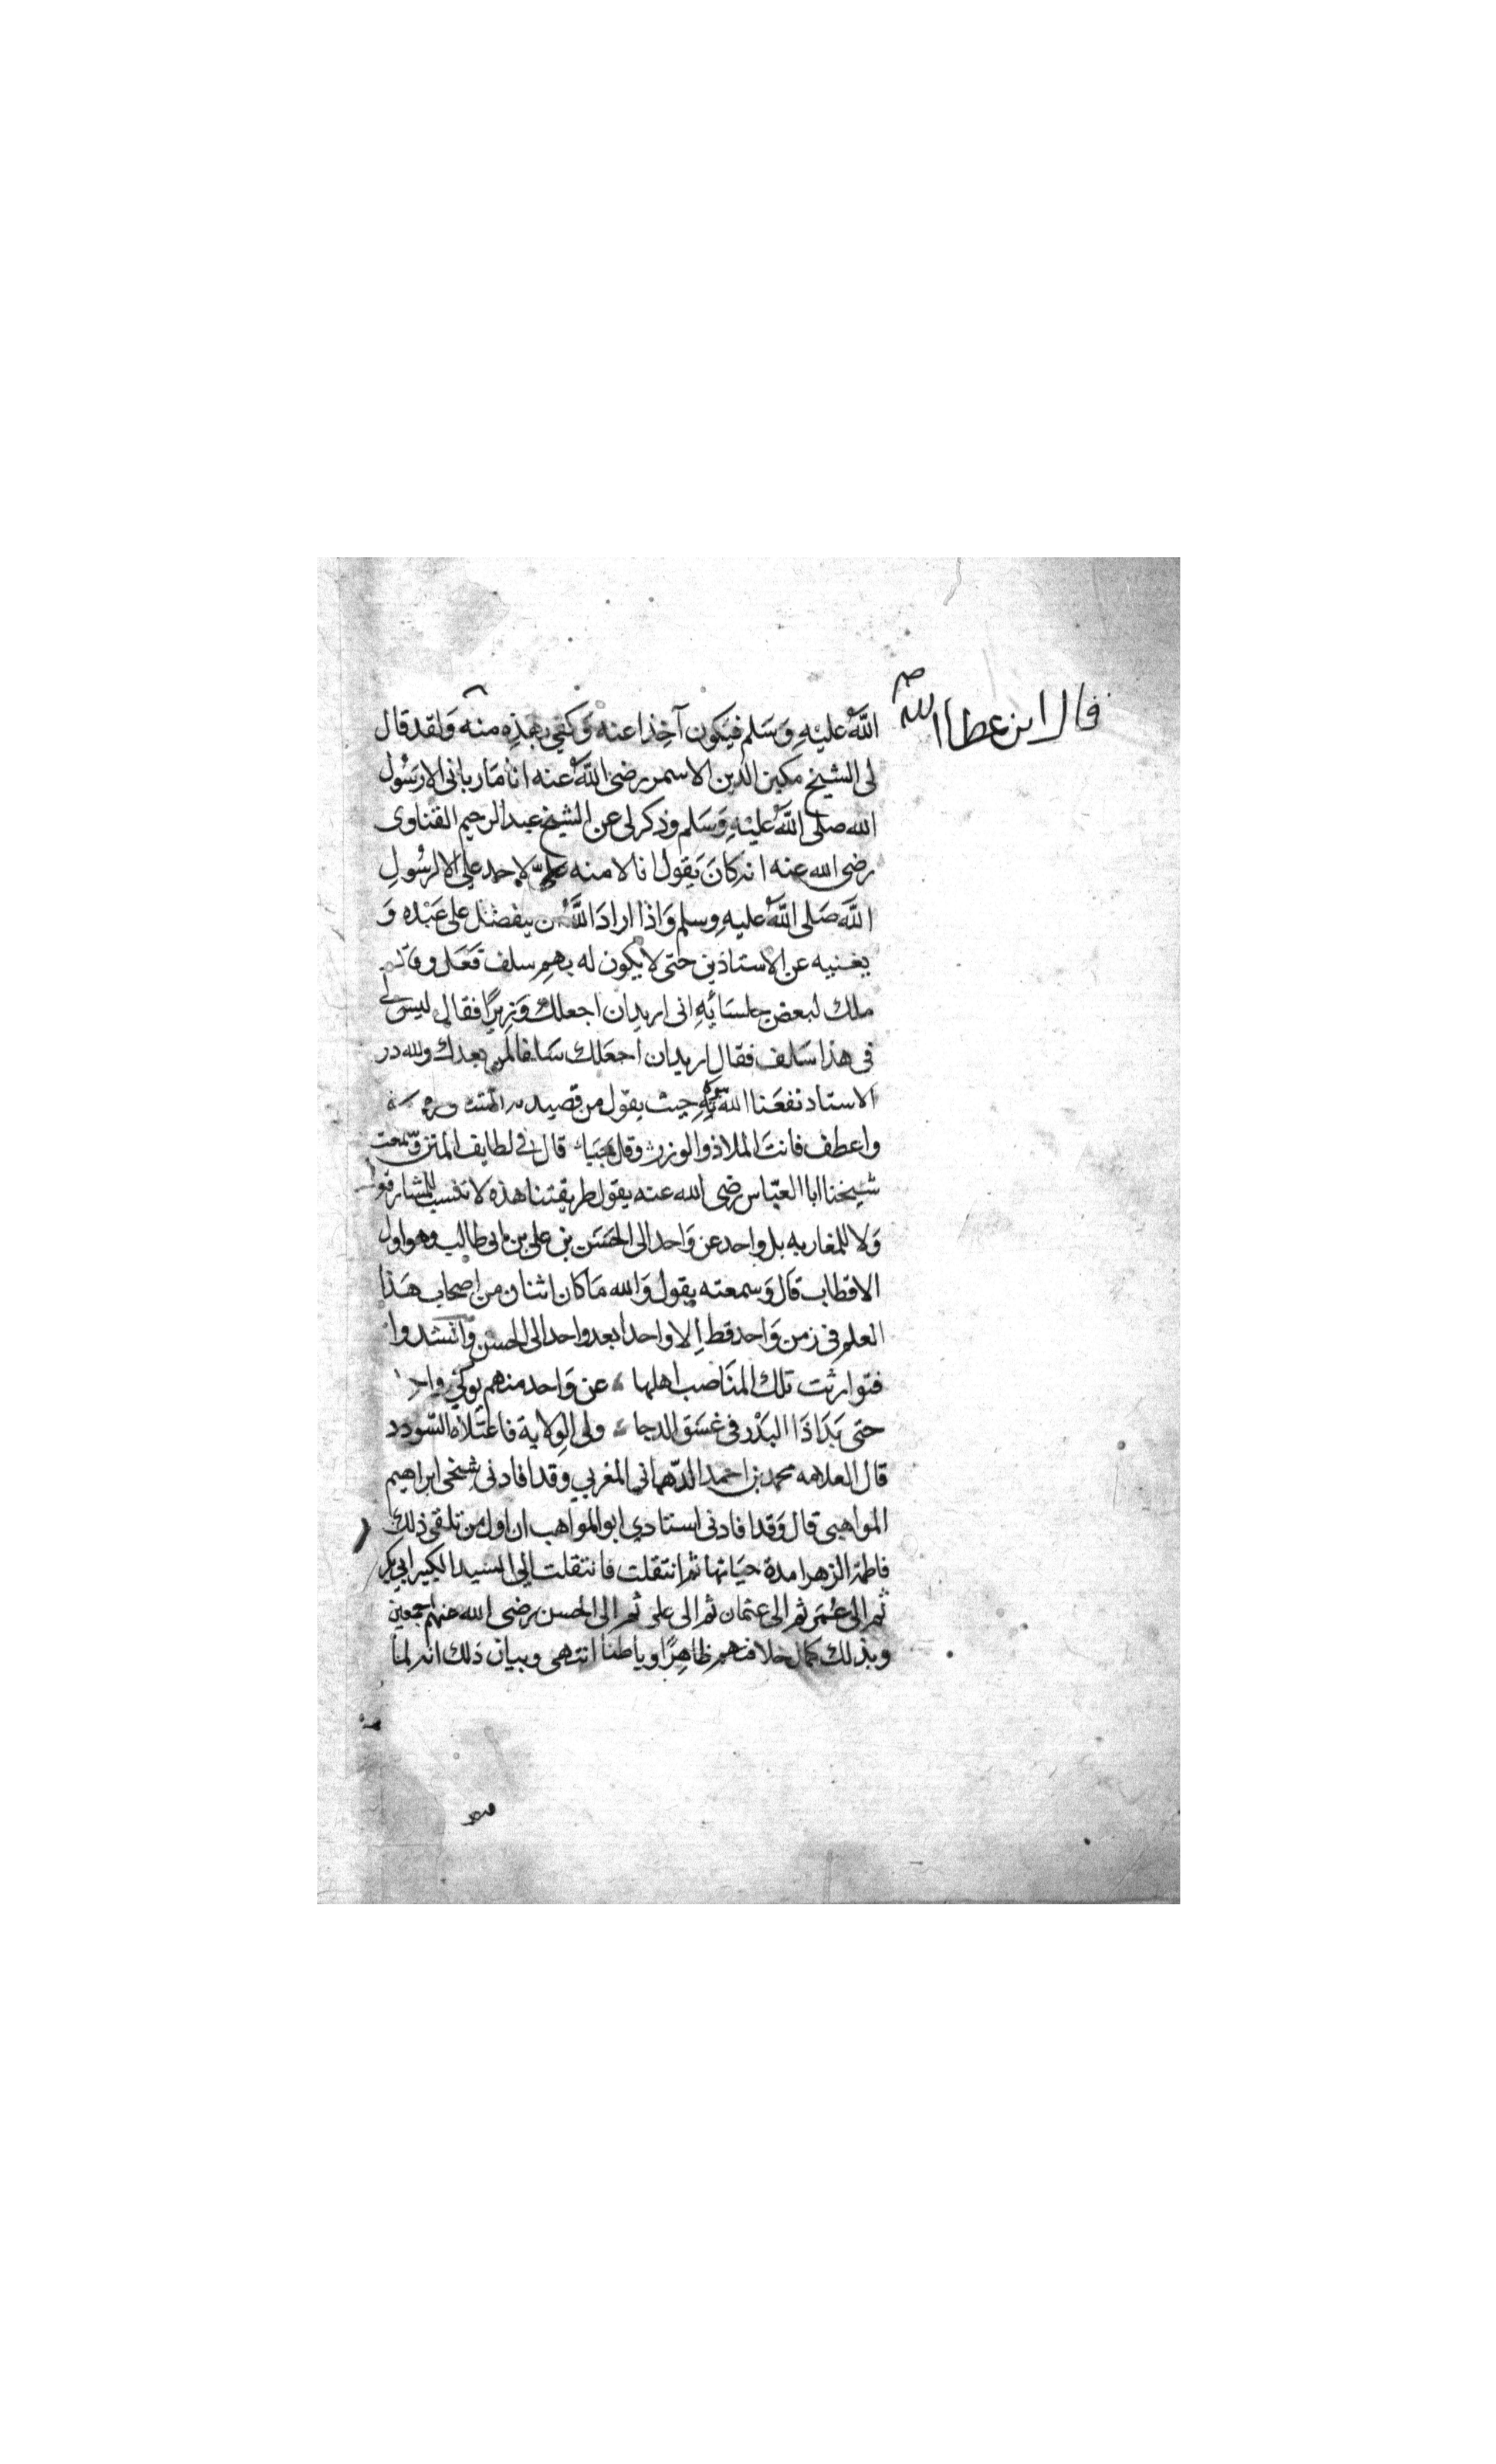 قال ابن عطا الله
الله عليه وَسَلم فيكون آخِذا عنه وَكفي بهذِه منه وَلقد قال
لى الشيخ مكين الدين الاسمر رضى الله عنه انا مَا ربانى الا رسُول
الله صلى الله عليهِ وَسَلم وذكر لى عن الشيخ عبد الرحيم القناوى
رضى الله عنه انه كانَ يَقول انا لا منه لاحد علي الا لرسُولِ
الله صَلى الله عليهِ وسلم وَاذا ارادَ الله ان يتفضل على عَبْده وَ
يغنيه عن الاستاذين حتى لا يكون له بهم سلف فَعَل وقال
ملك لبعض جلسَائِهِ انى اريد ان اجعلك وَزيرًا فقال ليس لى
فى هذا سَلف فقال اريد ان اجعَلك سَلفا لمن بعدك ولله در
الاستاد نفعَنا الله به حيث يقول من قصيد
واعطف فانتَ الملاذ والوزر قال فى لطايف المنن وسمعت
شيخنا ابا العبّاس رضى الله عنه يقول طريقتنا هذه لا تنسب للمشارقة
وَلا للمغاربه بل واحد عن وَاحد الى الحسَن بن على بن ابى طالب وهو اول
الاقطاب قال وَسمعته يقول وَالله مَا كان اثنان من اصحاب هَذا
العلم فى زمن وَاحد قط اِلا واحدا بعد واحد الى الحسن وانشدوا
فتوارثت تلك المنَاصب اهلها عن وَاحد منهم
حتى بَدَا ذَا البَدْر فى غسَق الدجا ولى الوِلاية فاعتلاه السّودد
قال العلامه محمد بن احمد الدّهمانى المغربي وقد افادنى شيخى ابراهيم
المواهبى قال وَقد افادنى استادي ابو المواهب ان اول من تلقى ذلك
فاطمة الزهرا مدة حيَاتها ثم انتقلت فانتقلت الي السيد الكبير ابي بكر
ثم الى عُمَر ثم الى عثمان ثم الى على ثم الى الحسن رضى الله عنهم اجمعين
وبذلك كمال خلافتهم ظاهِرًا وباطنا انتهى وبيان ذلك انه لما